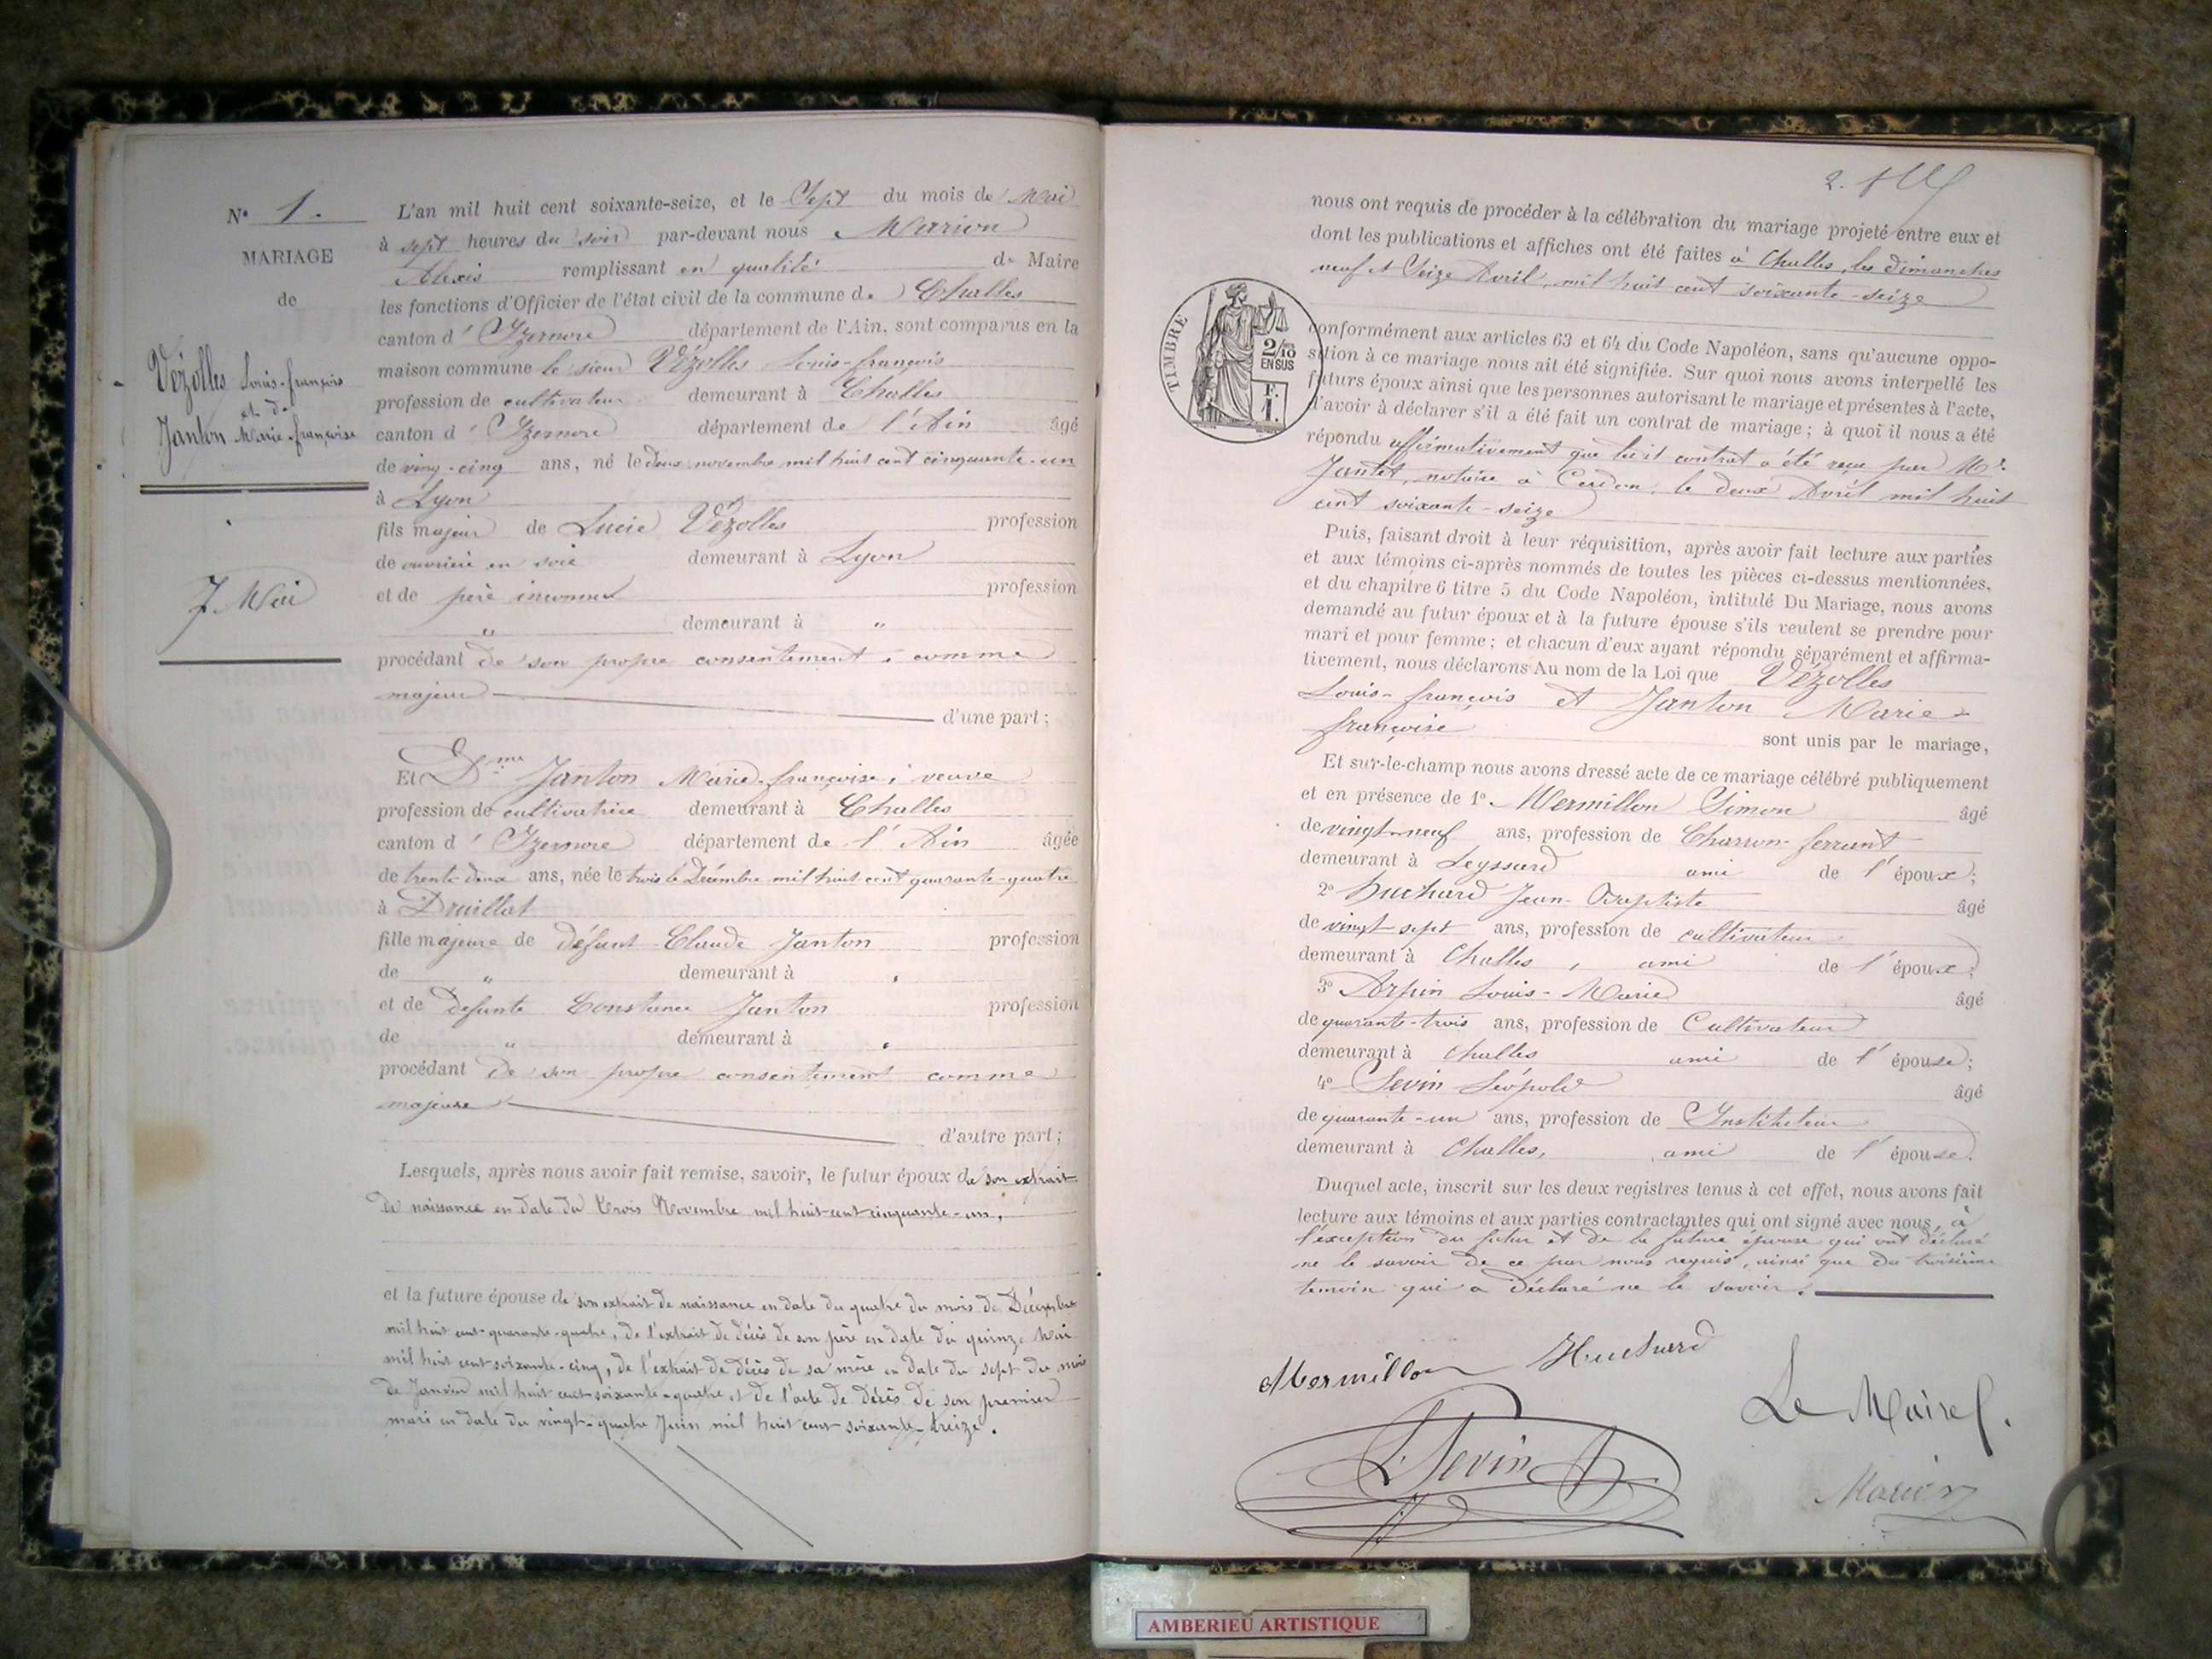 N° 1.
MARIAGE
de
Vézolles Louis-françois
et de
Janton Marie-françoise
7 Mai
L'an mil huit cent soixante-seize, et le Sept du mois de Mai
à sept heures du soir par-devant nous Marion
Alexis remplissant en qualité de Maire
les fonctions d'Officier de l'état civil de la commune de Challes
canton d' Izernore département de l'Ain, sont comparus en la
maison commune le sieur Vézolles Louis-françois
profession de cultivateur demeurant à Challes
canton d' Izernore département de l'Ain âgé
de ving-cinq ans, né le deux novembre mil huit cent cinquante-un
à Lyon
fils majeur de Lucie Vézolles profession
de ouvrière en soie demeurant à Lyon
et de père inconnu profession
" demeurant à "
procédant de son propre consentement, comme
majeur d'une part;
Et Dme Janton Marie-françoise, veuve
profession de cultivatrice demeurant à Challes
canton d' Izernore département de l'Ain âgée
de trente-deux ans, née le trois Décembre mil huit cent quarante-quatre
à Druillat
fille majeure de défunt Claude Janton profession
de " demeurant à "
et de defunte Constance Janton profession
de " demeurant à "
procédant de son propre consentement comme
majeure d'autre part;
Lesquels, après nous avoir fait remise, savoir, le futur époux de son extrait
de naissance en date du trois Novembre mil huit-cent cinquante-un,
et la future épouse de son extrait de naissance en date du quatre du mois de Décembre
mil huit cent-quarante-quatre, de l'extrait de décès de son père en date du quinze Mai
mil huit cent-soixante-cinq, de l'extrait de décès de sa mère en date du sept du mois
de Janvier mil huit cent-soixante-quatre et de l'acte de décès de son premier
mari en date du vingt-quatre Juin mil huit cent soixante-treize.
2.
nous ont requis de procéder à la célébration du mariage projeté entre eux et
dont les publications et affiches ont été faites à Challes, les dimanches
neuf et Seize Avril, mil huit cent soixante-seize
TIMBRE
2/10
EN SUS
F.
1.
conformément aux articles 63 et 64 du Code Napoléon, sans qu'aucune oppo-
sition à ce mariage nous ait été signifiée. Sur quoi nous avons interpellé les
futurs époux ainsi que les personnes autorisant le mariage et présentes à l'acte,
d'avoir à déclarer s'il a été fait un contrat de mariage; à quoi il nous a été
répondu affirmativement que le dit contrat a été reçu par Me
Jantet, notaire à Cerdon, le deux Avril mil huit
cent soixante-seize
Puis, faisant droit à leur réquisition, après avoir fait lecture aux parties
et aux témoins ci-après nommés de toutes les pièces ci-dessus mentionnées,
et du chapitre 6 titre 5 du Code Napoléon, intitulé Du Mariage, nous avons
demandé au futur époux et à la future épouse s'ils veulent se prendre pour
mari et pour femme; et chacun d'eux ayant répondu séparément et affirma-
tivement, nous déclarons Au nom de la Loi que Vézolles
Louis-françois et Janton Marie-
françoise sont unis par le mariage,
Et sur-le-champ nous avons dressé acte de ce mariage célébré publiquement
et en présence de 1° Mermillon Simon âgé
de vingt-neuf ans, profession de Charron-ferrant
demeurant à Leyssard ami de l'époux;
2° Huchard Jean-Baptiste âgé
de vingt sept ans, profession de cultivateur
demeurant à Challes, ami de l'époux;
3° Arpin Louis-Marie âgé
de quarante-trois ans, profession de Cultivateur
demeurant à Challes ami de l'épouse;
4° Sevin Léopold âgé
de quarante-un ans, profession de Instituteur
demeurant à Challes, ami de l'épouse.
Duquel acte, inscrit sur les deux registres tenus à cet effet, nous avons fait
lecture aux témoins et aux parties contractantes qui ont signé avec nous, à
l'exception du futur et de la future épouse qui ont déclaré
ne le savoir de ce par nous requis, ainsi que du troisième
temoin qui a déclaré ne le savoir.
Mermillon Huchard
L Sevin
Le Maire
Marion
AMBERIEU ARTISTIQUE